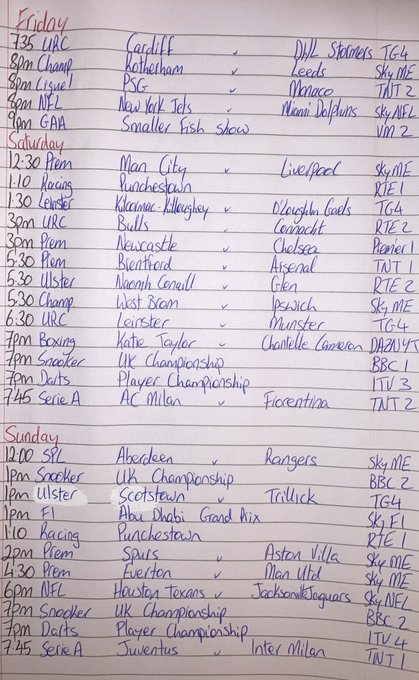 Friday
7.35 URC Cardiff v DHL Stormers TG4
8pm Champ Rotherham v Leeds Sky ME
8pm Ligue1 PSG v Monaco TNT 2
8pm NFL New York Jets v Miami Dolphins Sky NFL
9pm GAA Smaller Fish Show VM 2
Saturday
12:30 Prem Man City v Liverpool Sky ME
1.10 Racing Punchestown RTE 1
1:30 Leinster Kilcormac-Killoughey v O'Loughlin Gaels TG4
3pm URC Bulls v Connacht RTE 2
3pm Prem Newcastle v Chelsea Premier 1
5:30 Prem Brentford v Arsenal TNT 1
5.30 Ulster Naomh Conaill v Glen RTE 2
5.30 Champ West Brom v Ipswich Sky ME
6:30 URC Leinster v Munster TG4
7pm Boxing Katie Taylor v Chantelle Cameron DAZN
7pm Snooker UK Championship BBC 1
7pm Darts Player Championship ITV 3
7.45 Serie A AC Milan v Fiorentina TNT 2
Sunday
12:00 SPL Aberdeen v Rangers Sky ME
1pm Snooker UK Championship BBC 2
1pm Ulster Scotstown v Trillick TG4
1pm F1 Abu Dhabi Grand Prix Sky F1
1:10 Racing Punchestown RTE 1
2pm Prem Spurs v Aston Villa Sky ME
4:30 Prem Everton v Man Utd Sky ME
6pm NFL Houston Texans v Jacksonville Jaguars Sky NFL
7pm Snooker UK Championship BBC 2
7pm Darts Player Championship ITV 4
7.45 Serie A Juventus v Inter Milan TNT 1